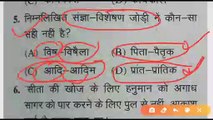 5. निम्नलिखित संज्ञा-विशेषण जोड़ी में कौन-सा
सही नहीं है?
(A) विष-विषैला (B) पिता-पैतृक
(C) आदि-आदिम (D) प्रात-प्रातिक
6. सीता की खोज के लिए हनुमान को अगाध
सागर को पार करने के लिए पुल से नहीं, आकाश